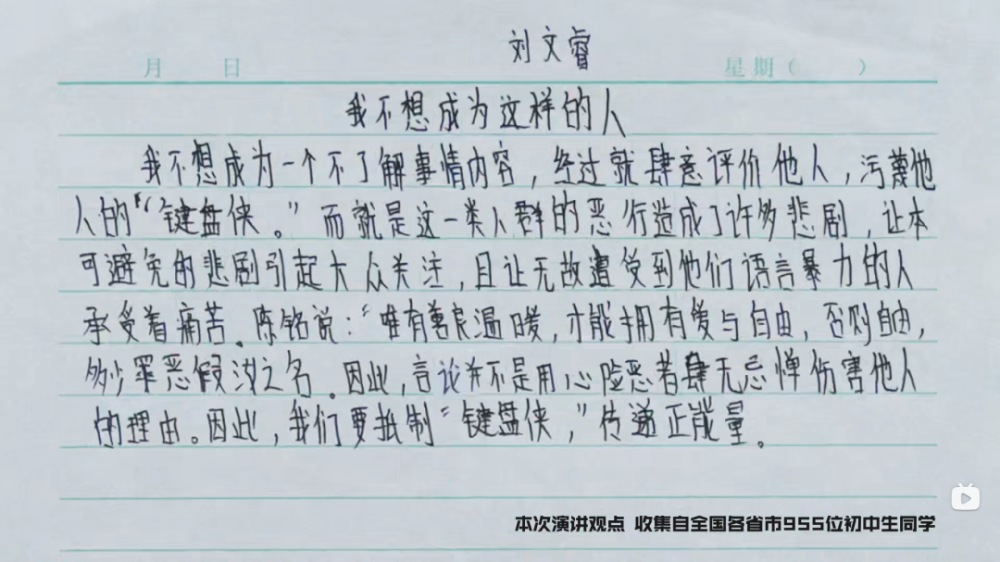 刘文睿
月 日 星期( )
我不想成为这样的人
我不想成为一个不了解事情内容，经过就肆意评价他人，污蔑他
人的“键盘侠。”而就是这一类人群的恶行造成了许多悲剧，让本
可避免的悲剧引起大众关注，且让无故遭受到他们语言暴力的人
承受着痛苦。陈铭说：“唯有善良温暖，才能拥有爱与自由，否则自由，
多少罪恶假汝之名。因此，言论并不是用心险恶者肆无忌惮伤害他人
的理由。因此，我们要抵制“键盘侠，”传递正能量。
本次演讲观点 收集自全国各省市955位初中生同学